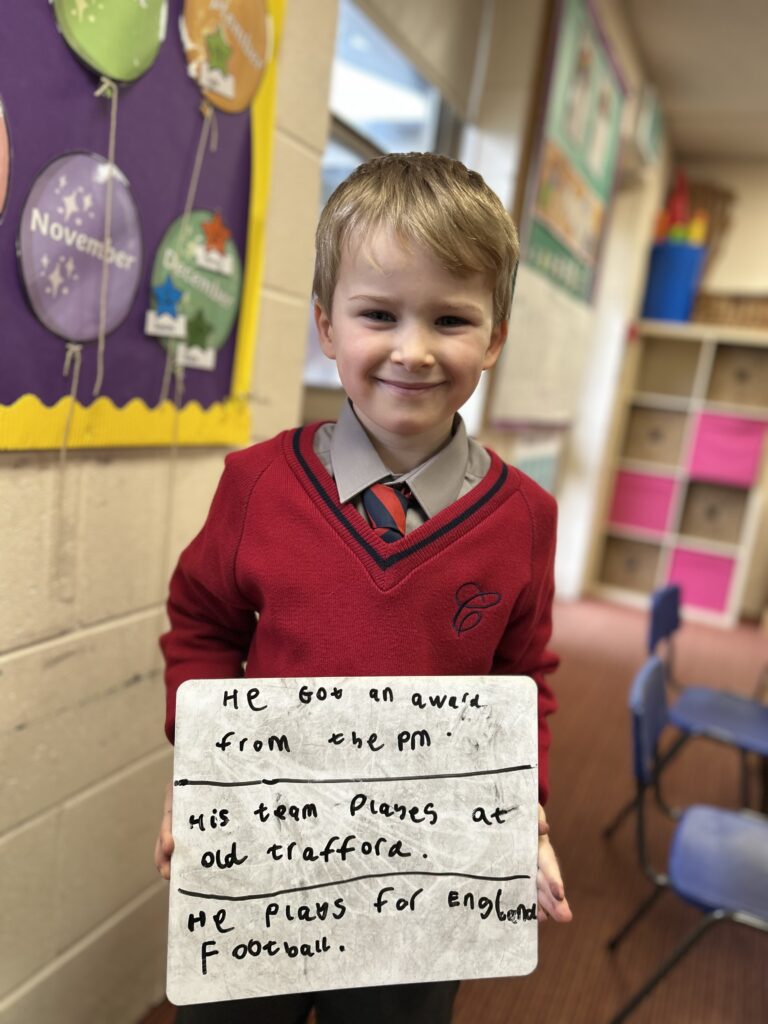 November
December
He Got an award
from the PM.
His team Playes at
old trafford.
He plays for England
Football.